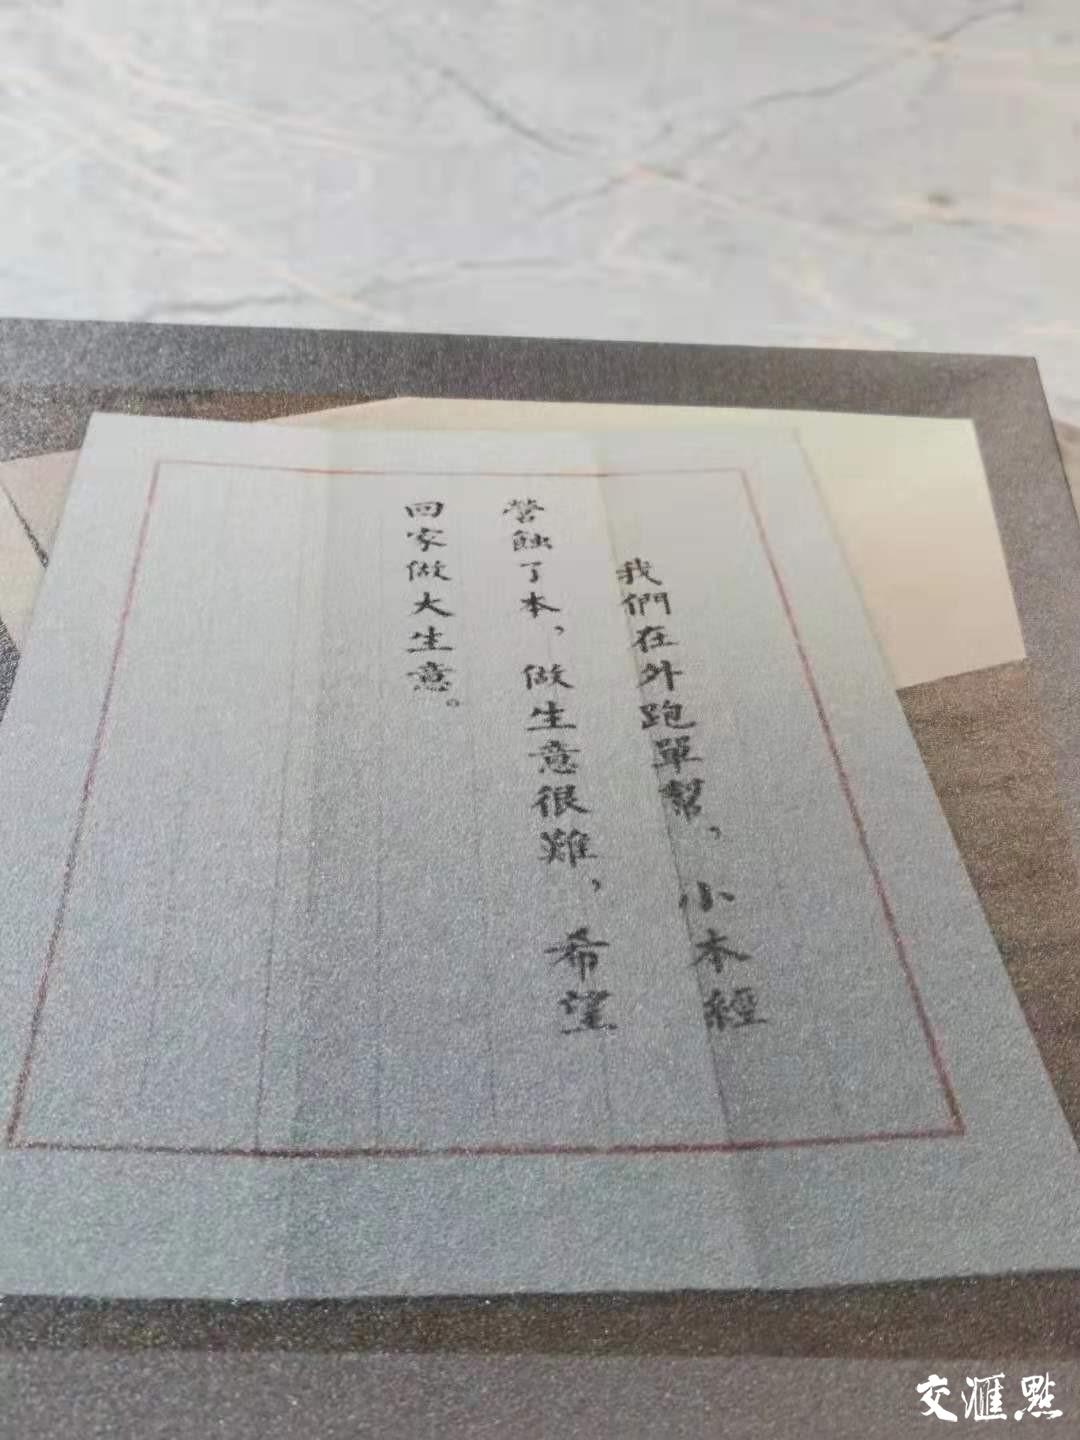 我們在外跑單幫，小本經
營蝕了本，做生意很難，希望
回家做大生意。
交滙點